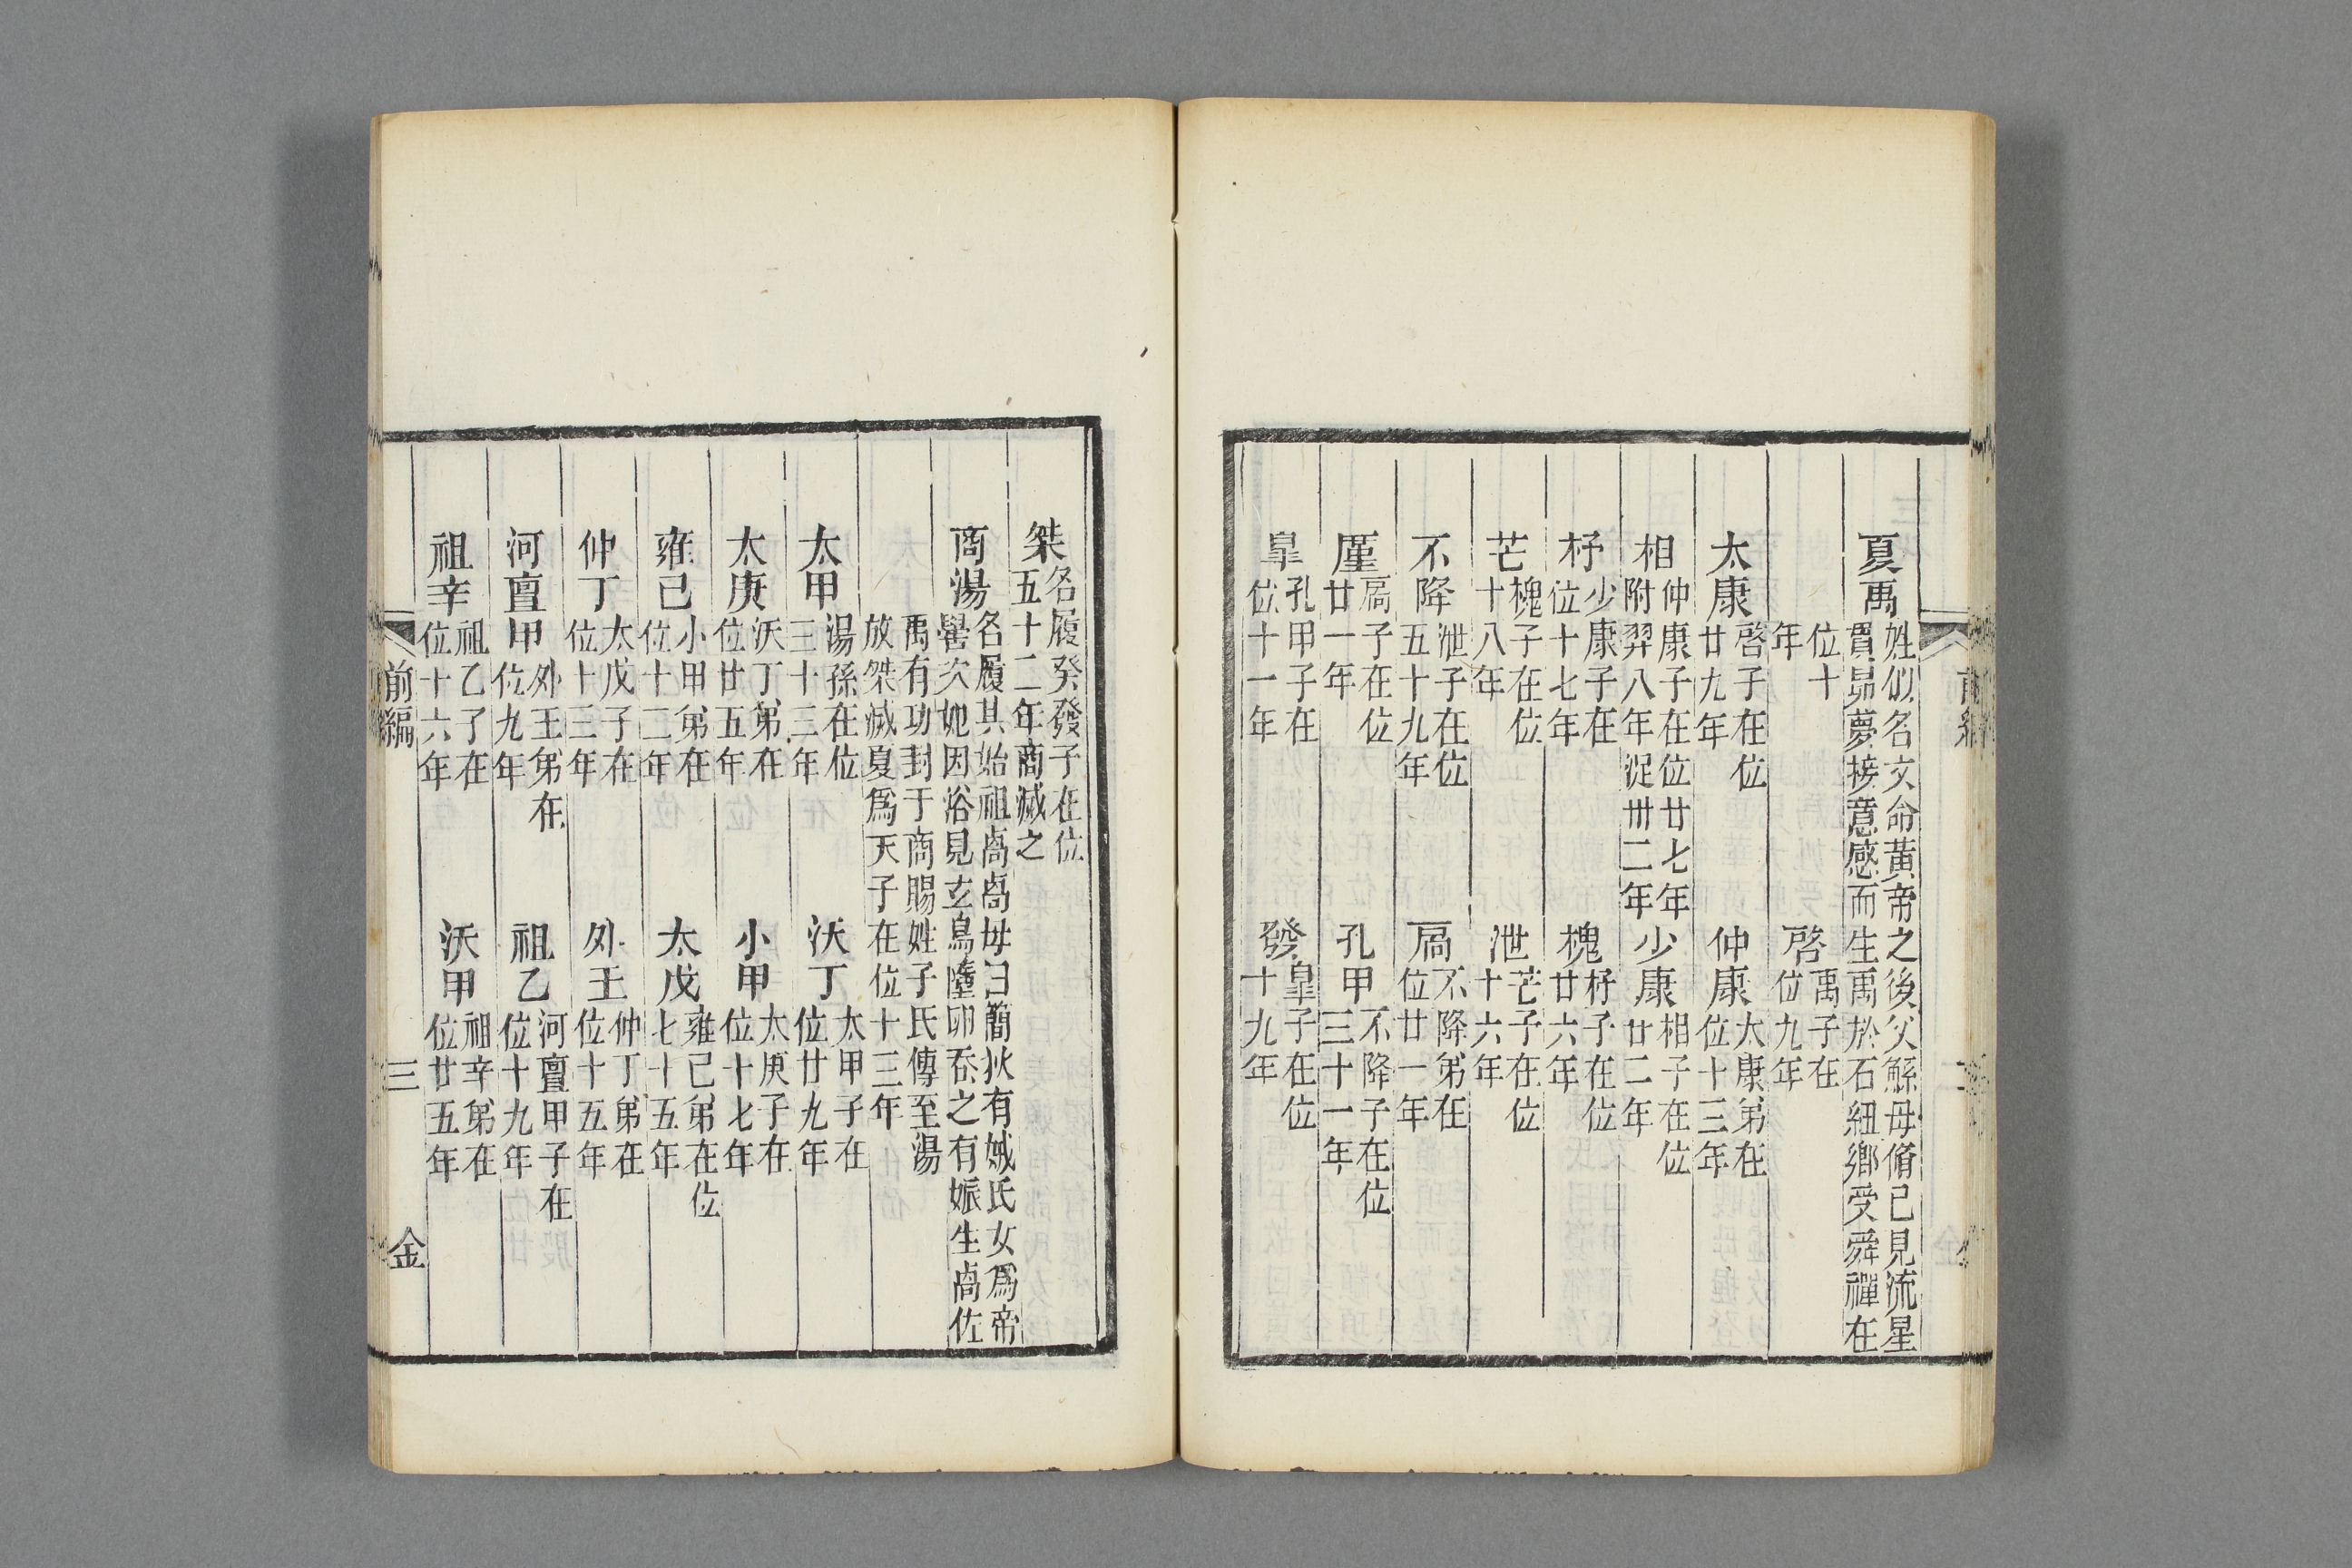 夏禹姓似名文命黃帝之後父鯀母脩己見流星
貫昴夢接意感而生禹於石紐鄉受舜禪在
位十
年
啓禹子在
位九年
太康啓子在位
廿九年
仲康太康弟在
位十三年
相仲康子在位廿七年
附羿八年浞卅二年
少康相子在位
廿二年
杼少康子在
位十七年
槐杼子在位
廿六年
芒槐子在位
十八年
泄芒子在位
十六年
不降泄子在位
五十九年
扃不降弟在
位廿一年
廑扃子在位
廿一年
孔甲不降子在位
三十一年
皐孔甲子在
位十一年
發皐子在位
十九年
桀名履癸發子在位
五十二年商滅之
商湯名履其始祖卨卨母曰簡狄有娀氏女爲帝
嚳次妃因浴見玄鳥墮卵吞之有娠生卨佐
禹有功封于商賜姓子氏傳至湯
放桀滅夏爲天子在位十三年
太甲湯孫在位
三十三年
沃丁太甲子在
位廿九年
太庚沃丁弟在
位廿五年
小甲太庚子在
位十七年
雍己小甲弟在
位十二年
太戊雍己弟在位
七十五年
仲丁太戊子在
位十三年
外壬仲丁弟在
位十五年
河亶甲外王弟在
位九年
祖乙河亶甲子在
位十九年
祖辛祖乙子在
位十六年
沃甲祖辛弟在
位廿五年
前編
三
金